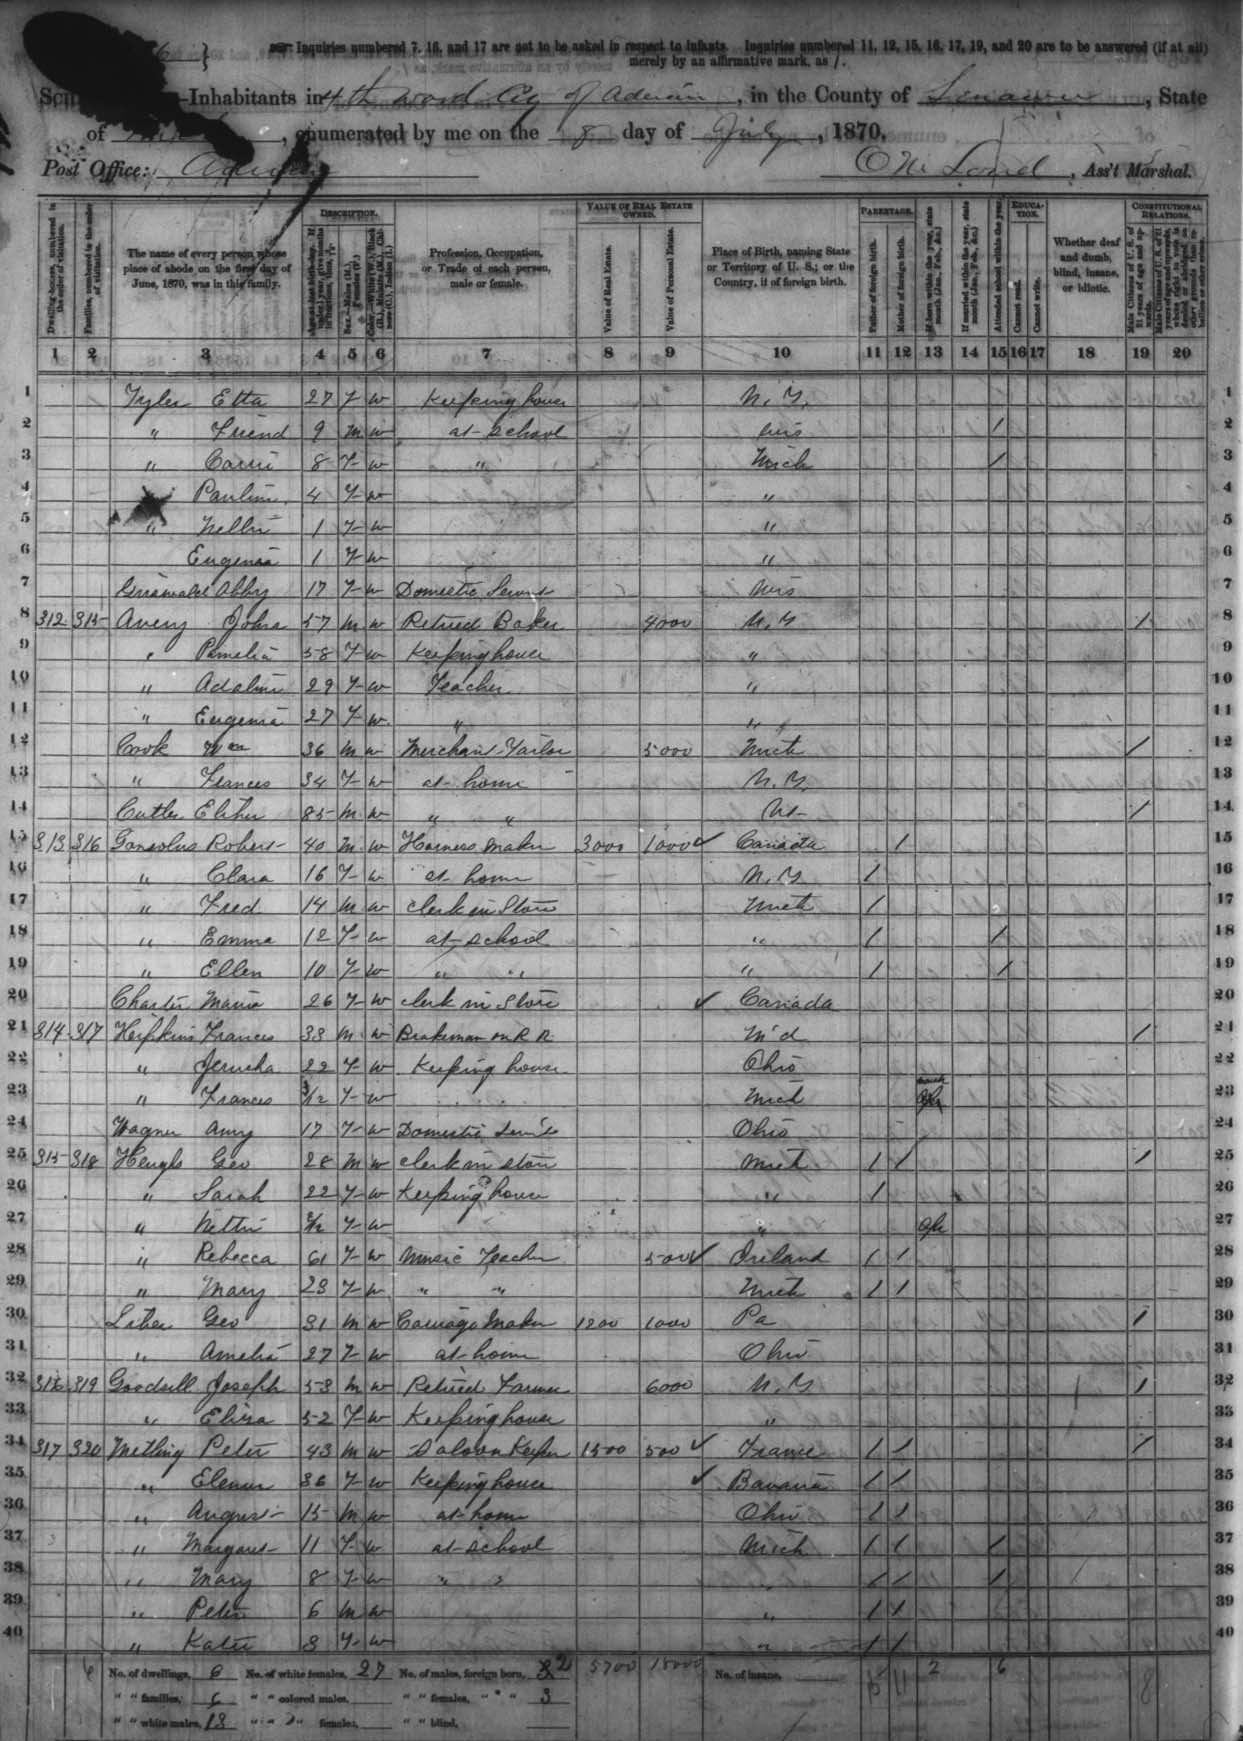 ☞ Inquiries numbered 7, 16, and 17 are not to be asked in respect to infants. Inquiries numbered 11, 12, 15, 16, 17, 19, and 20 are to be answered (if at all)
merely by an affirmative mark, as /.
Inhabitants in 4th ward City of Adrian, in the County of Lenawee, State
of , enumerated by me on the 8 day of July, 1870.
Post Office: Adrian , Ass't Marshal.
DESCRIPTION. VALUE OF REAL ESTATE OWNED. PARENTAGE. EDUCATION. CONSTITUTIONAL RELATIONS.
Dwelling-houses, numbered in the order of visitation.
Families, numbered in the order of visitation.
The name of every person whose place of abode on the first day of June, 1870, was in this family.
Profession, Occupation, or Trade of each person, male or female.
Value of Real Estate.
Value of Personal Estate.
Place of Birth, naming State or Territory of U. S.; or the Country, if of foreign birth.
Father of foreign birth.
Mother of foreign birth.
Attended school within the year.
Cannot read.
Cannot write.
Whether deaf and dumb, blind, insane, or idiotic.
1 2 3 4 5 6 7 8 9 10 11 12 13 14 15 16 17 18 19 20
1 Tyler Etta 27 F W Keeping house N. Y. 1
2 " Friend 9 M W at school Wis / 2
3 " Carrie 8 F W " Mich / 3
4 Pauline 4 F W " 4
5 " Nellie 1 F W " 5
6 Eugenia 1 F W " 6
7 Griswald Abby 17 F W Domestic Servt Wis 7
8 312 315 Avery John 57 M W Retired Baker 4000 N. Y / 8
9 " Pamelia 58 F W Keeping house " 9
10 " Adaline 29 F W Teacher " 10
11 " Eugenia 27 F W " " 11
12 Cook Wm 36 M W Merchant Tailor 5000 Mich / 12
13 " Frances 34 F W at home N. Y. 13
14 Cutler Elihu 85 M W " " Vt / 14
15 313 316 Gonsolus Robert 40 M W Harness Maker 3000 1000 ✓ Canada / 15
16 " Clara 16 F W at home N. Y / 16
17 " Fred 14 M W Clerk in Store Mich / 17
18 " Emma 12 F W at school " / / 18
19 " Ellen 10 F W " " " / / 19
20 Charter Maria 26 F W Clerk in Store ✓ Canada 20
21 314 317 Hipkins Frances 33 M W Brakeman on R R M'd / 21
22 " Jerusha 22 F W Keeping house Ohio 22
23 " Frances 3/12 F W Mich March 23
24 Wagner Amy 17 F W Domestic Ohio 24
25 315 318 Geo 28 M W Clerk in store Mich / / / 25
26 " Sarah 22 F W Keeping house " / 26
27 " Nettie 2/12 F W " Apr 27
28 " Rebecca 61 F W Music Teacher 500 ✓ Ireland / / 28
29 " Mary 23 F W " " Mich / / 29
30 Geo 31 M W Carriage Maker 1200 1000 Pa / 30
31 " Amelia 27 F W at home Ohio 31
32 316 319 Goodsell Joseph 53 M W Retired Farmer 6000 N. Y / 32
33 " Eliza 52 F W Keeping house " 33
34 317 320 Methling Peter 43 M W Saloon Keeper 1500 500 ✓ France / / / 34
35 " Elenor 36 F W Keeping house ✓ Bavaria / / 35
36 " August 15 M W at home Ohio / / 36
37 " Margaret 11 F W at school Mich / / / 37
38 " Mary 8 F W " " " / / / 38
39 " Peter 6 M W " / / 39
40 " Katie 3 F W " / / 40
No. of dwellings, 6 No. of white females, 27 No. of males, foreign born, 2 5700 18000 No. of insane, 11 2 6 8
" " families, 6 " " colored males, " " females, " " 3
" " white males, 13 " " " females, " " blind,